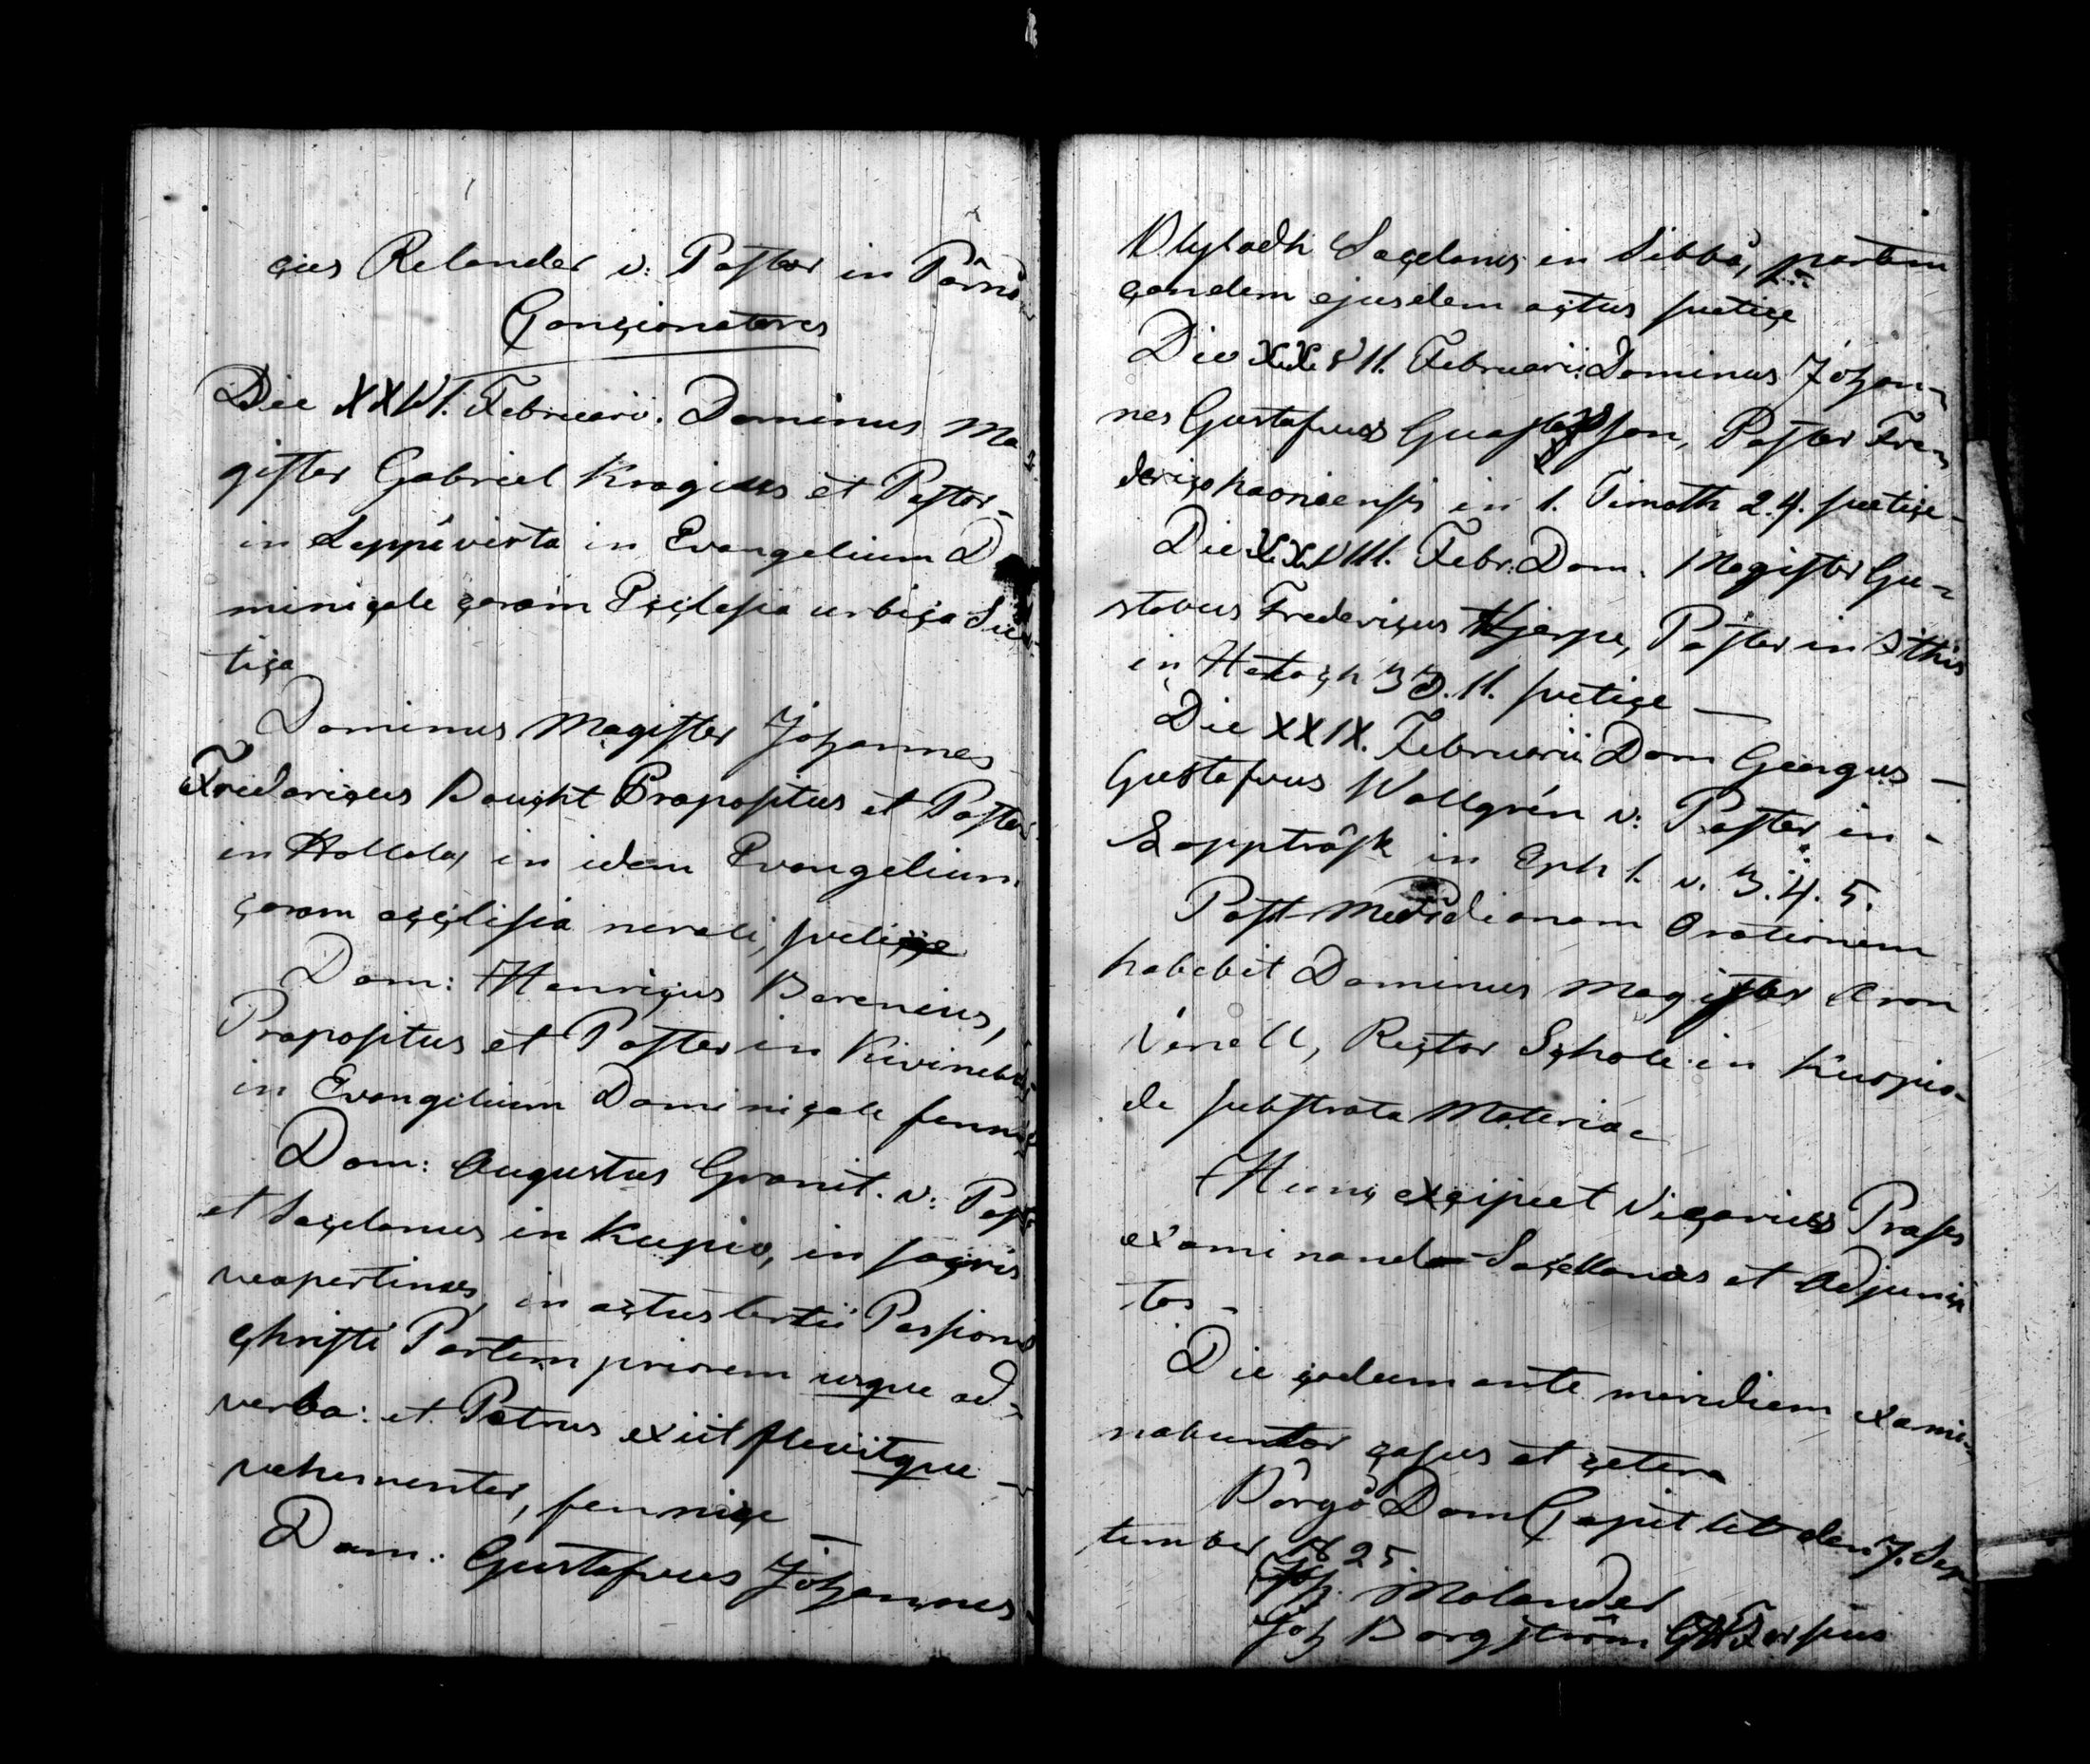 cus Relander v: Pastor in Pärnå
Concionatores
Die XXVI. Februari. Dominus Ma-
gister Gabriel Krogius et Pastor
in Leppävirta in Evangelium Do
minicale coram Ecclesia urbica Sue-
tica
Dominus Magister Johannes
Fridericus Bought Præpositus et Pastor
in Hollola, in idem Evangelium
coram acclesia nurali, svetice
Dom: Henricus Borenius,
Præpositus et Pastor in Kivineb
in Evangelium Dominicale fenni
Dom: Augustus Granit. v: Past
et Sacelanus in Kupio, in sacris
vespertinas, in actus tertii Passionis
Christi Partem priorem usque ad
verba: et Petrus exiit flevitque
vehementer, fennice
Dom: Gustafvus Johannes
Blybadh Sacelanus in Sibbå, partem
eandem ejusdem actus svetice
Die XXVII. Februarii Dominus Johan-
nes Gustafvus Guastafsson, Pastor Fre-
dericshaoniensis in 1. Timoth 2.4. svetice
Die XXVIII. Febr. Dom. Magister Gu-
stavus Fredericus Hjerpe, Pastor in Sthis
in Hetach 33. 11. svetice
Die XXIX. Februarii Dom Georgus
Gustafvus Wallgrén v: Pastor in
Lappträsk in Eph 1. v. 3.4.5.
Post Meridianam Orationem
habebit Dominus Magister Aron
Nenell, Rector Schole in Kuopio
de substrata Materiae
Hunc excipiet Vicarius Præses
examinando Sacellanos et Adjunc
tos
Die eodem ante meridiem exami-
nabuntor casus et cetera
Borgå Dom Capitlet den 7. Sep-
tember 1825.
Joh. Molander
Joh Borgström G W Forsius